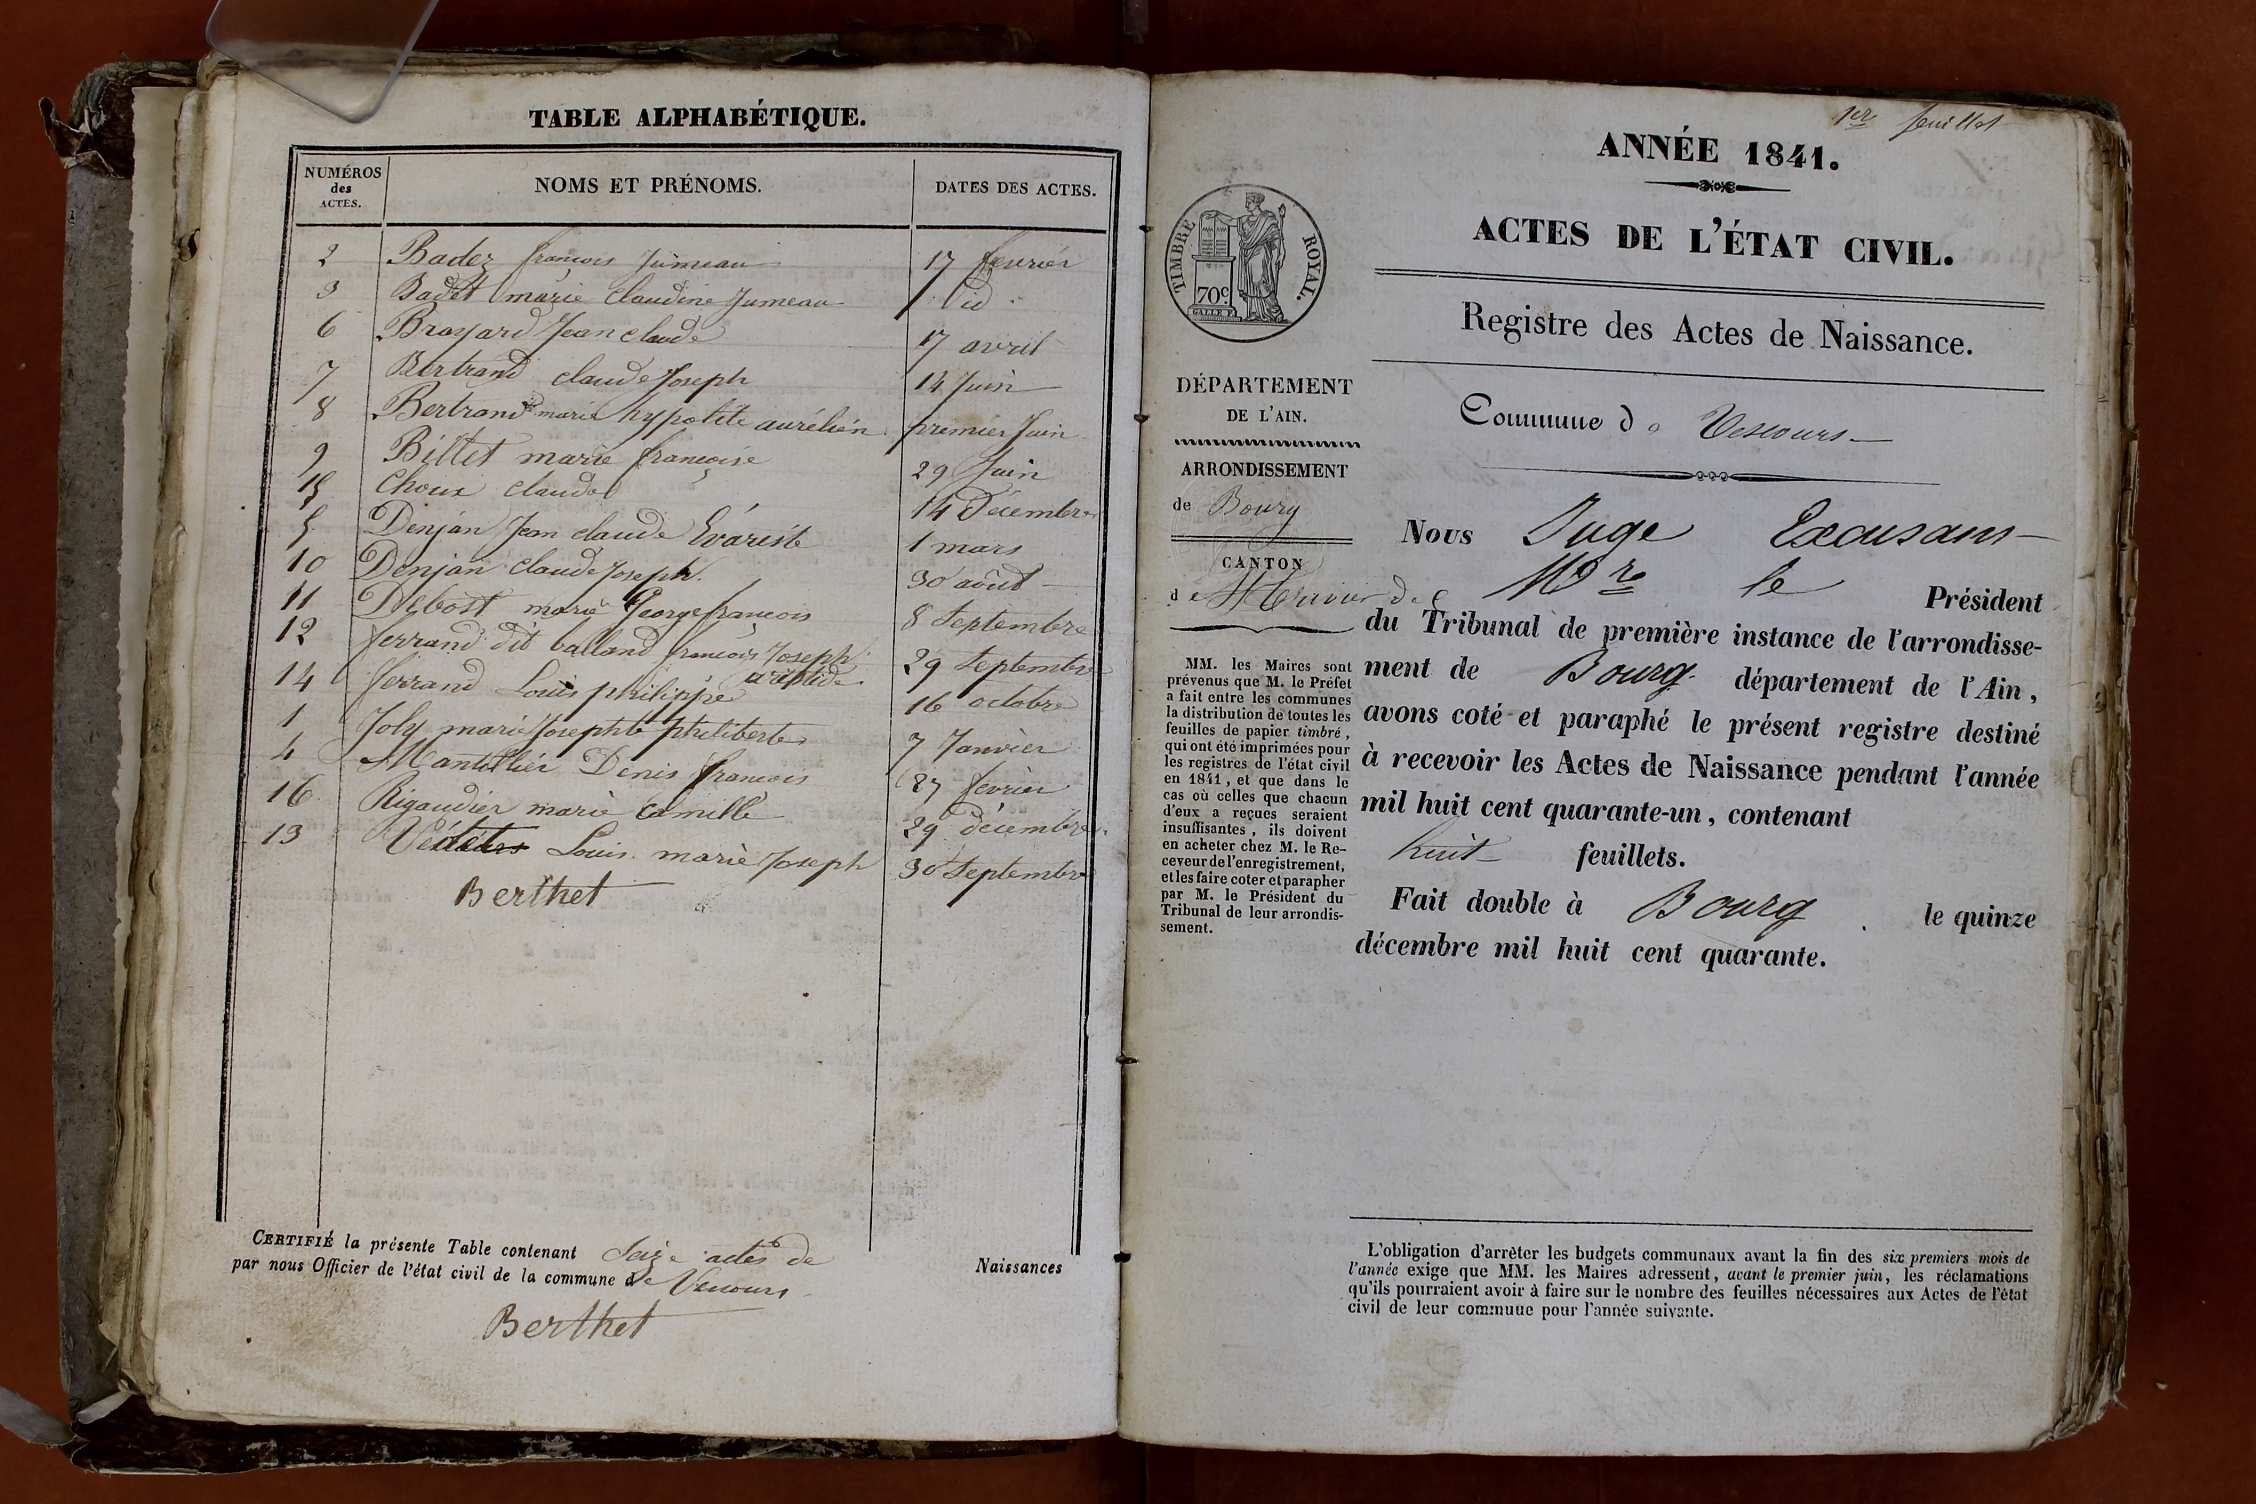 TABLE ALPHABÉTIQUE.
NUMÉROS des ACTES. NOMS ET PRÉNOMS. DATES DES ACTES.
2 Badez francois Jumeau 17 fevrier
3 Badet marie Claudine Jumeau id
6 Brossard Jean Claude 17 avril
7 Bertrand claude Joseph 14 Juin
8 Bertrand marie hypolite aurélien premier Juin
9 Billet marie francoise 29 Juin
15 Choux claude 14 Décembre
5 Denján Jean claude Evariste 1 mars
10 Denjan Claude Joseph 30 août
11 Debost marie George francois 8 Septembre
12 ferrand dit balland francois Joseph aristide 29 Septembre
14 ferrand Louis philippe 16 octobre
1 Joly marie Josephte philiberte 7 Janvier
4 Mantellier Denis francois 27 février
16 Rigaudier marie Camille 29 décembre
13 Louis marie Joseph 30 Septembre
Berthet
CERTIFIÉ la présente Table contenant Seize actes de Naissances
par nous Officier de l'état civil de la commune de Vescours
Berthet
1er feuillet
ANNÉE 1841.
ACTES DE L'ÉTAT CIVIL.
Registre des Actes de Naissance.
TIMBRE ROYAL.
70c
DÉPARTEMENT
DE L'AIN.
ARRONDISSEMENT
de Bourg
CANTON
de St Trivier de C
MM. les Maires sont
prévenus que M. le Préfet
a fait entre les communes
la distribution de toutes les
feuilles de papier timbré,
qui ont été imprimées pour
les registres de l'état civil
en 1841, et que dans le
cas où celles que chacun
d'eux a reçues seraient
insuffisantes, ils doivent
en acheter chez M. le Re-
ceveur de l'enregistrement,
et les faire coter et parapher
par M. le Président du
Tribunal de leur arrondis-
sement.
Commune de Vescours
Nous Juge Excusans
Mre le Président
du Tribunal de première instance de l'arrondisse-
ment de Bourg département de l'Ain,
avons coté et paraphé le présent registre destiné
à recevoir les Actes de Naissance pendant l'année
mil huit cent quarante-un, contenant
huit feuillets.
Fait double à Bourg le quinze
décembre mil huit cent quarante.
L'obligation d'arrêter les budgets communaux avant la fin des six premiers mois de
l'année exige que MM. les Maires adressent, avant le premier juin, les réclamations
qu'ils pourraient avoir à faire sur le nombre des feuilles nécessaires aux Actes de l'état
civil de leur commune pour l'année suivante.